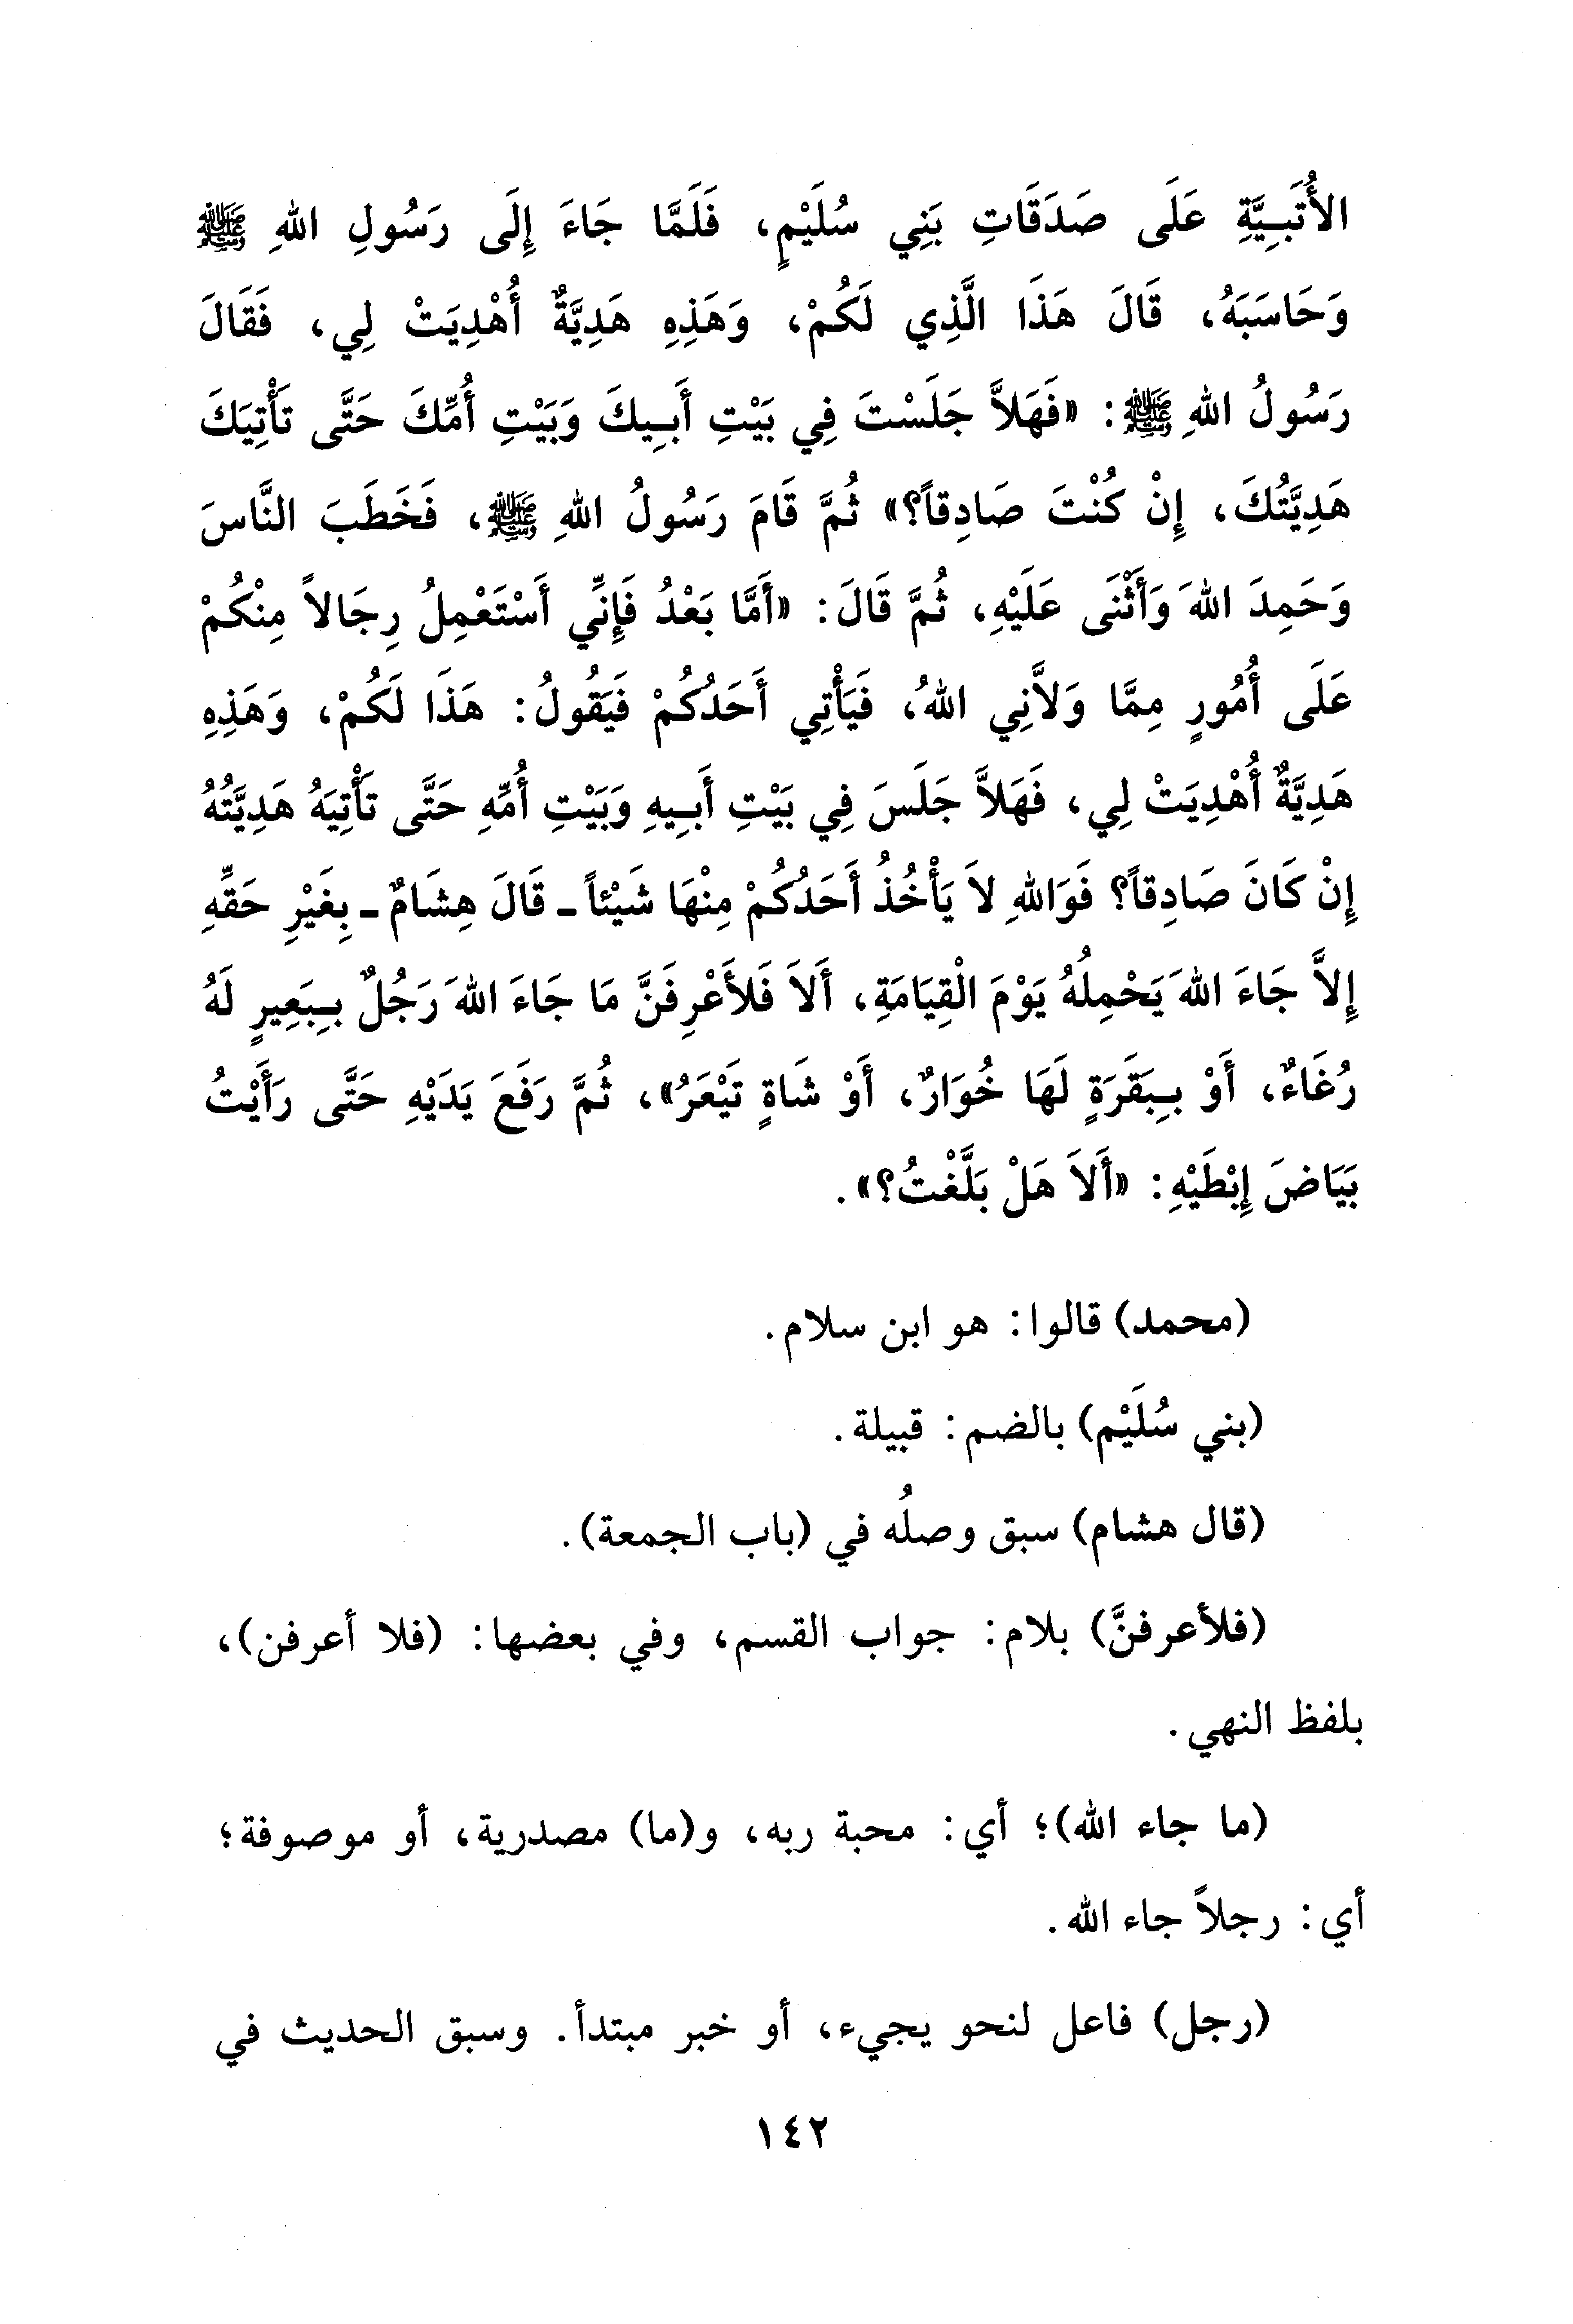 الأُتَبِيَّةِ عَلَى صَدَقَاتِ بَنِي سُلَيْمٍ، فَلَمَّا جَاءَ إِلَى رَسُولِ اللهِ ﷺ
وَحَاسَبَهُ، قَالَ هَذَا الَّذِي لَكُمْ، وَهَذِهِ هَدِيَّةٌ أُهْدِيَتْ لِي، فَقَالَ
رَسُولُ اللهِ ﷺ: «فَهَلاَّ جَلَسْتَ فِي بَيْتِ أَبِيكَ وَبَيْتِ أُمِّكَ حَتَّى تَأْتِيَكَ
هَدِيَّتُكَ، إِنْ كُنْتَ صَادِقاً؟» ثُمَّ قَامَ رَسُولُ اللهِ ﷺ، فَخَطَبَ النَّاسَ
وَحَمِدَ اللهَ وَأَثْنَى عَلَيْهِ، ثُمَّ قَالَ: «أَمَّا بَعْدُ فَإِنِّي أَسْتَعْمِلُ رِجَالاً مِنْكُمْ
عَلَى أُمُورٍ مِمَّا وَلاَّنِي اللهُ، فَيَأْتِي أَحَدُكُمْ فَيَقُولُ: هَذَا لَكُمْ، وَهَذِهِ
هَدِيَّةٌ أُهْدِيَتْ لِي، فَهَلاَّ جَلَسَ فِي بَيْتِ أَبِيهِ وَبَيْتِ أُمِّهِ حَتَّى تَأْتِيَهُ هَدِيَّتُهُ
إِنْ كَانَ صَادِقاً؟ فَوَاللهِ لاَ يَأْخُذُ أَحَدُكُمْ مِنْهَا شَيْئاً ـ قَالَ هِشَامٌ ـ بِغَيْرِ حَقِّهِ
إِلاَّ جَاءَ اللهَ يَحْمِلُهُ يَوْمَ الْقِيَامَةِ، أَلاَ فَلأَعْرِفَنَّ مَا جَاءَ اللهَ رَجُلٌ بِبَعِيرٍ لَهُ
رُغَاءٌ، أَوْ بِبَقَرَةٍ لَهَا خُوَارٌ، أَوْ شَاةٍ تَيْعَرُ»، ثُمَّ رَفَعَ يَدَيْهِ حَتَّى رَأَيْتُ
بَيَاضَ إِبْطَيْهِ: «أَلاَ هَلْ بَلَّغْتُ؟».
(محمد) قالوا: هو ابن سلام.
(بني سُلَيْم) بالضم: قبيلة.
(قال هشام) سبق وصلُه في (باب الجمعة).
(فلأعرفنَّ) بلام: جواب القسم، وفي بعضها: (فلا أعرفن)،
بلفظ النهي.
(ما جاء الله)؛ أي: محبة ربه، و(ما) مصدرية، أو موصوفة؛
أي: رجلاً جاء الله.
(رجل) فاعل لنحو يجيء، أو خبر مبتدأ. وسبق الحديث في
١٤٢